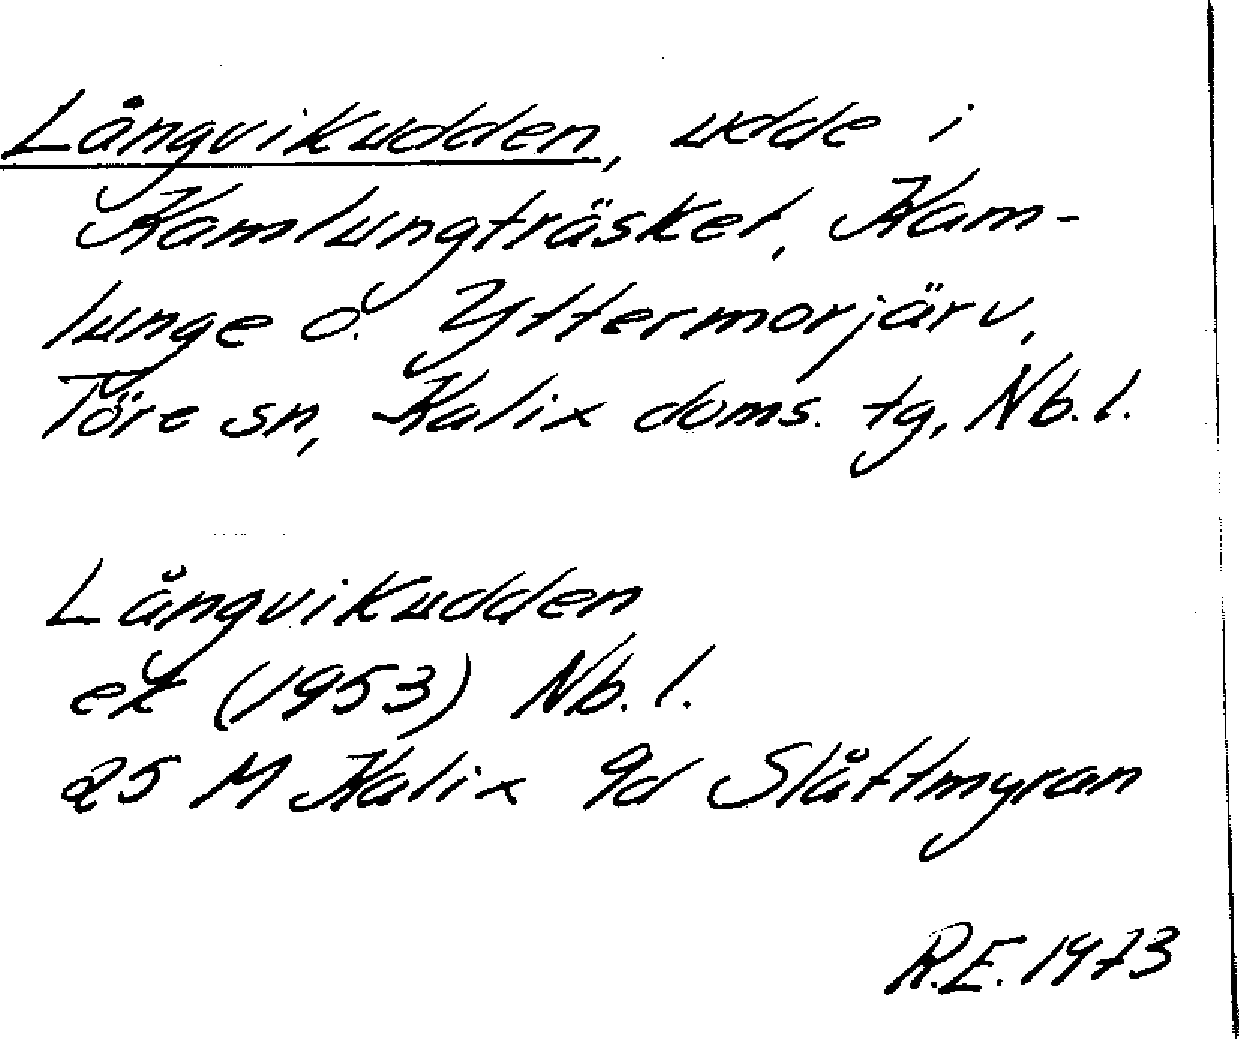 Långvikudden, udde i
Kamlungträsket, Kam-
lunge o. Yttermorjärv,
Töre sn, Kalix doms. tg, Nb. l.
Långvikudden
ek (1953) Nb. l.
25 M Kalix 9d Slåttmyran
R.E. 1973